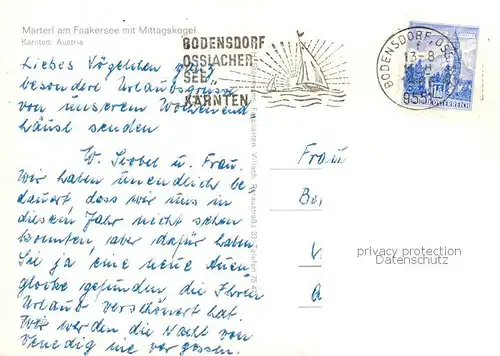 Marterl am Faakersee mit Mittagskogel
Kärnten, Austria
BODENSDORF
OSSIACHER-
SEE
KÄRNTEN
BODENSDORF
13.-8
955
ÖSTERREICH
Liebes Vögelchen ganz
besondere Urlaubsgrüsse
von unserem Wochenend
häusl senden
W. u. Frau.
Wir haben unendlich be
dauert, dass wir uns in
diesem Jahr nicht sehen
konnten, aber dafür haben
Sie ja eine neue
glocke gefunden die Ihren
Urlaub verschönert hat.
Wir werden die Nacht von
Venedig nie vergessen.
Frau
Be
V
A
privacy protection
Datenschutz